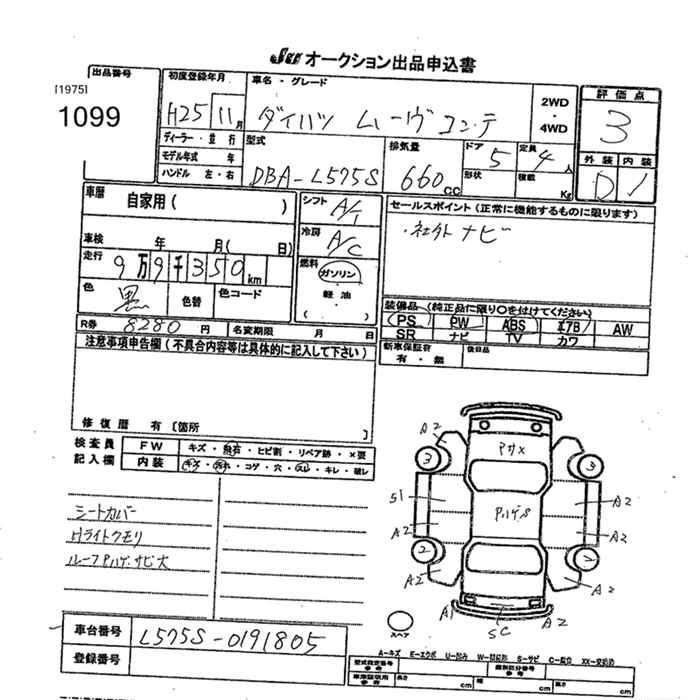 オークション出品申込書
出品番号
[1975]
1099
初度登録年月
H25 11月
車名・グレード
ダイハツ ムーヴコンテ
2WD・4WD
評価点
3
外装 内装
D 1
ディーラー・並行
モデル年式 年
ハンドル 左・右
型式
DBA-L575S
排気量
660cc
ドア 5
形状
定員 4人
積載 Kg
車歴
自家用( )
車検 年 月( 日)
走行
9万9千350km
色 黒
色替
色コード
シフト A/T
冷房 A/C
燃料
ガソリン
・
軽油
( )
セールスポイント(正常に機能するものに限ります)
・社外ナビ
装備品(純正品に限り○を付けてください)
PS PW ABS エアB AW
SR ナビ TV カワ
新車保証書
有・無
後日品
R券 8280円
名変期限 月 日
注意事項申告欄(不具合内容等は具体的に記入して下さい)
修復歴 有〔箇所 〕
検査員
記入欄
FW キズ・飛石・ヒビ割・リペア跡・×要
内装 キズ・汚れ・コゲ・穴・スレ・キレ・破レ
シートカバー
Hライトクモリ
ルーフPハゲ・サビ大
A2
PサX
3
3
S1
A2
PハゲS
A2
A2
2
A2
A2
A1
SC
A2
スペア
車台番号
L575S-0191805
登録番号
A-キズ E-エクボ U-凹み W-補修跡 S-サビ C-腐食 XX-交換済
型式指定番号
参考
類別区分番号
参考
車庫証明用
参考
長さ cm
幅 cm
高さ cm